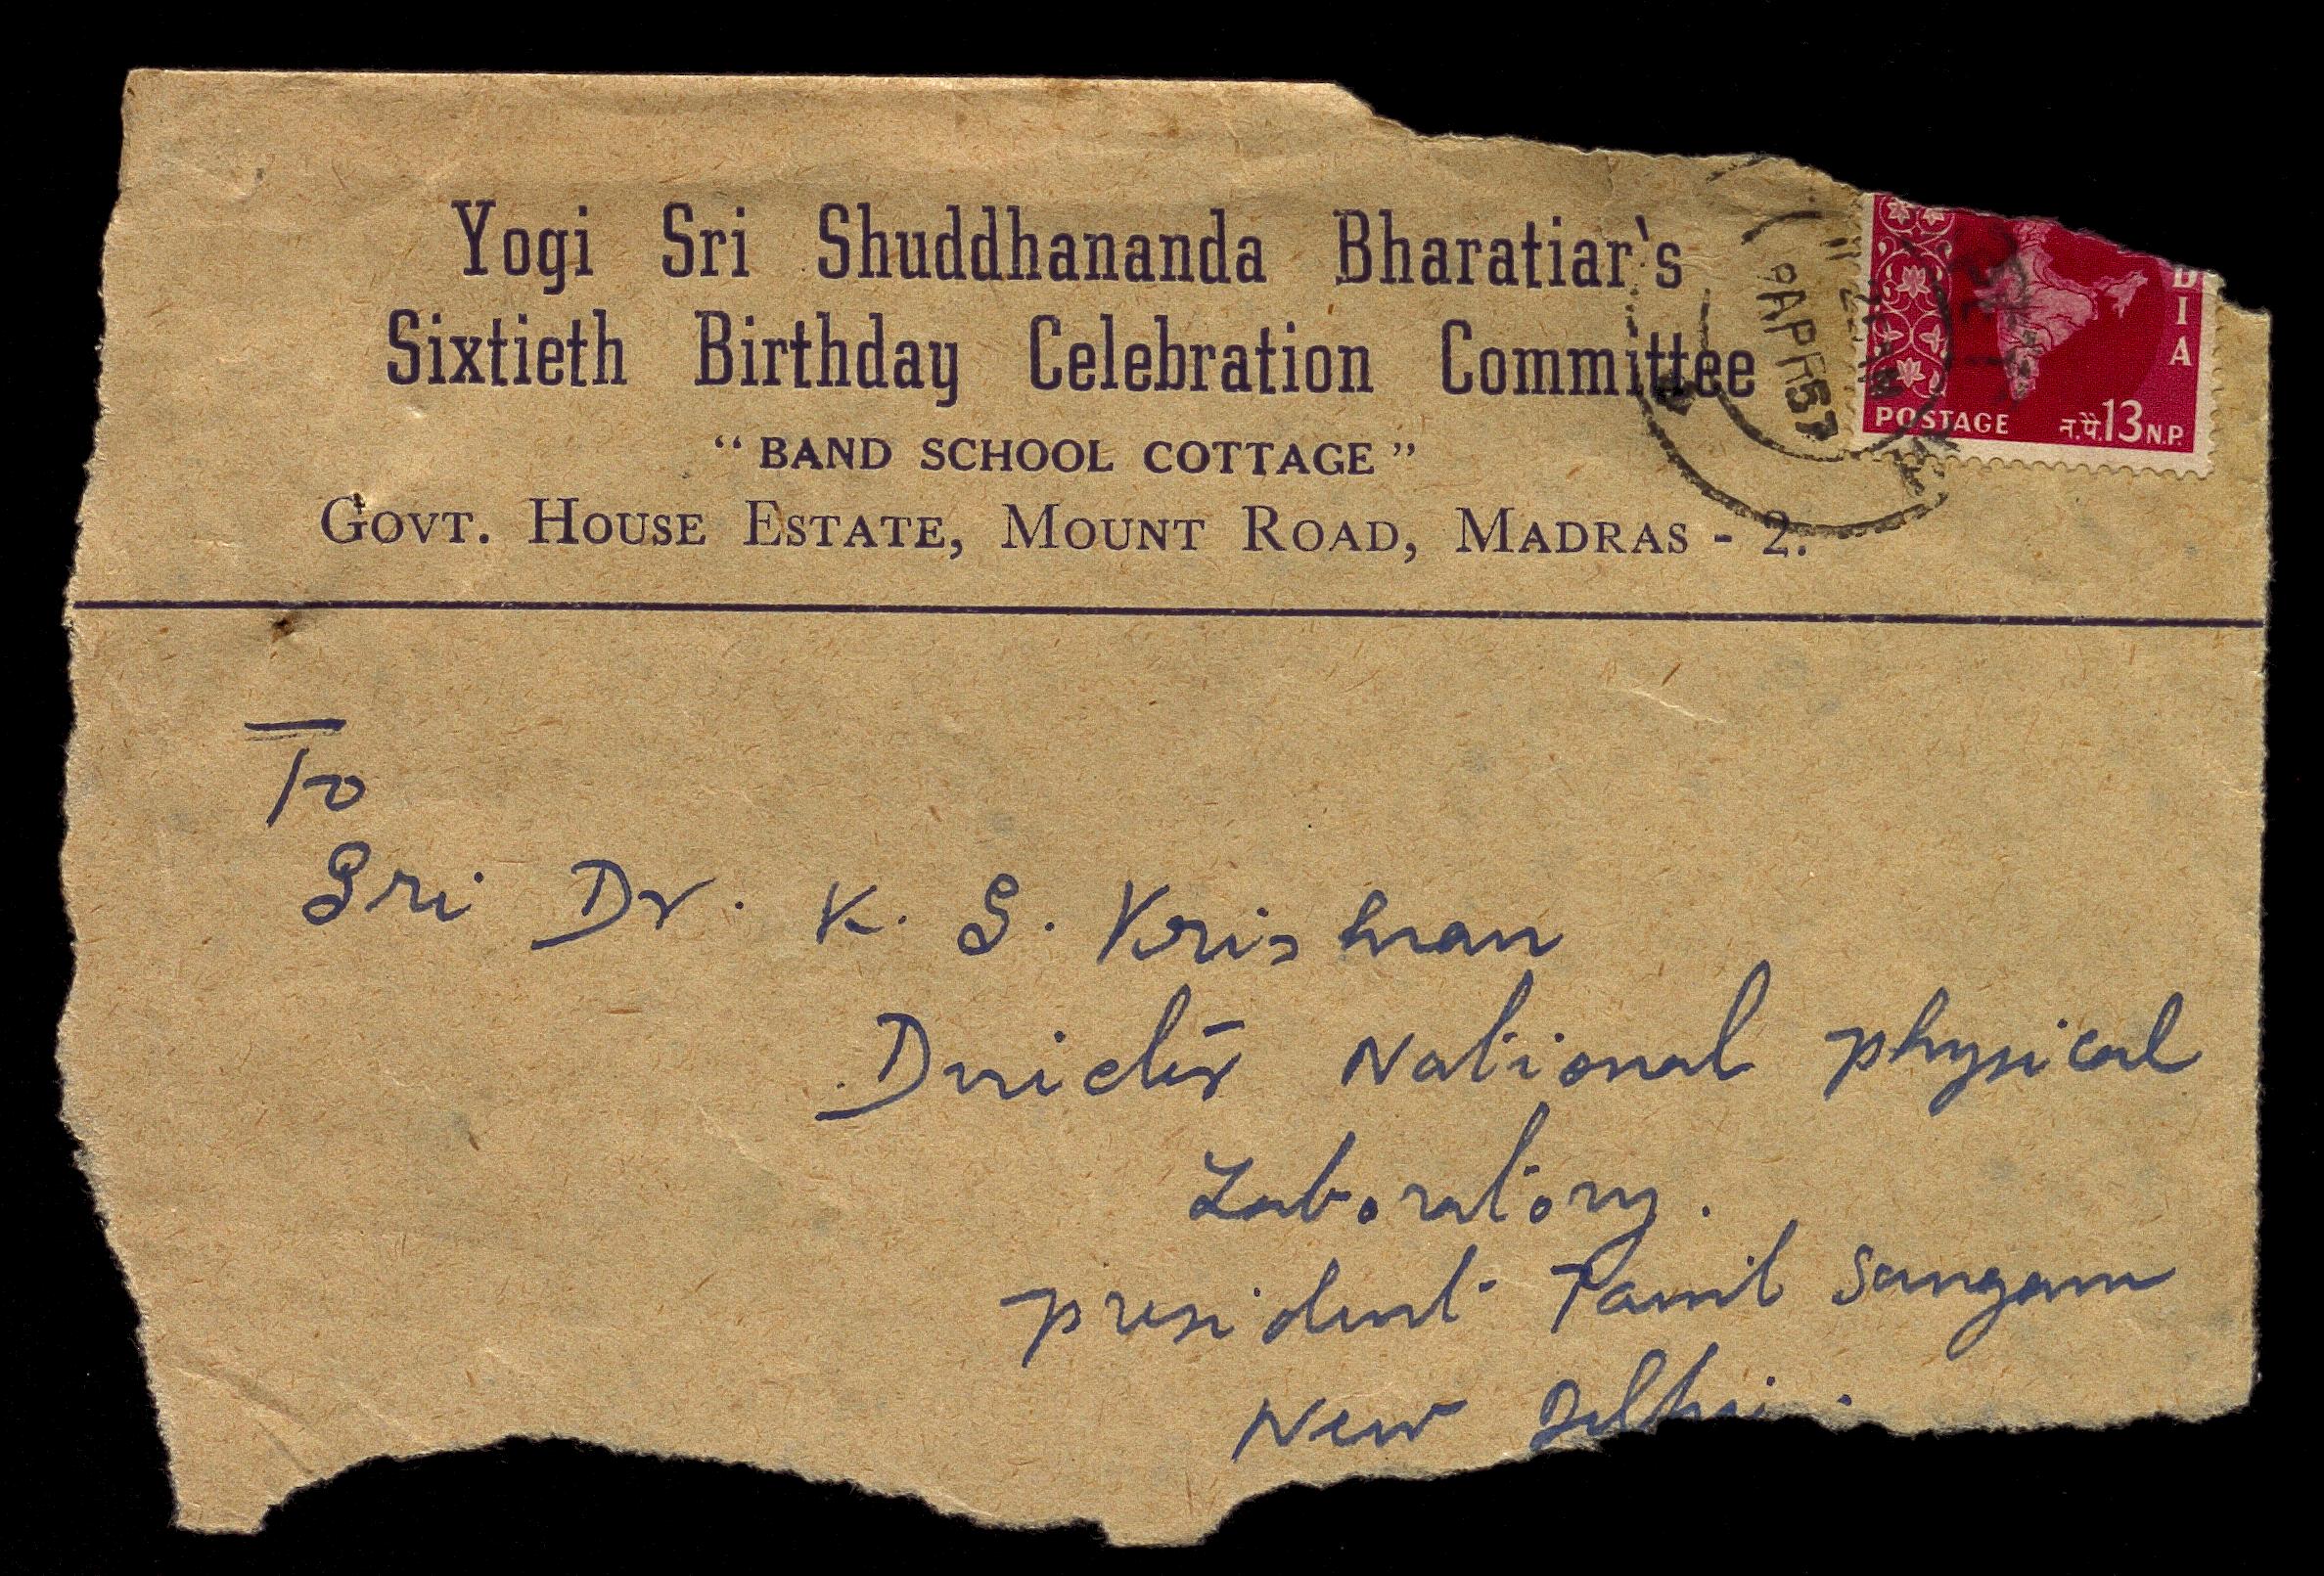 Yogi Sri Shuddhananda Bharatiar's
Sixtieth Birthday Celebration Committee
"BAND SCHOOL COTTAGE"
GOVT. HOUSE ESTATE, MOUNT ROAD, MADRAS - 2.
APR 57
DIA
POSTAGE न.पै.13 N.P.
To
Sri Dr. K. S. Krishnan
Director National physical
Laboratory.
president Tamil Sangam
New Delhi.